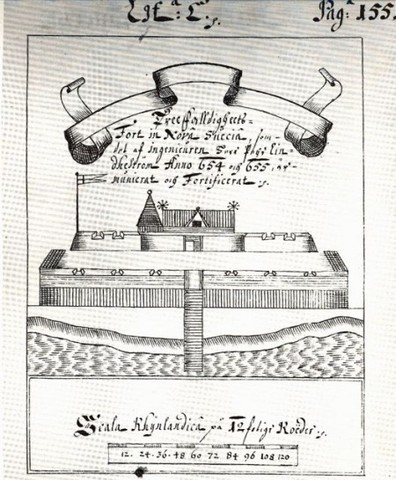 Litª: C.
Pag: 155.
Treefalldigheetz=
Fort in Nova Suecia, som-
det af ingenieuren Sveè Pehr Lin-
dheström Anno 1654 och 655, är
municerat och Fortificerat.
Scala Rhynlandica på 12 fotige Roeder.
12. 24. 36. 48 60 72 84 96 108 120